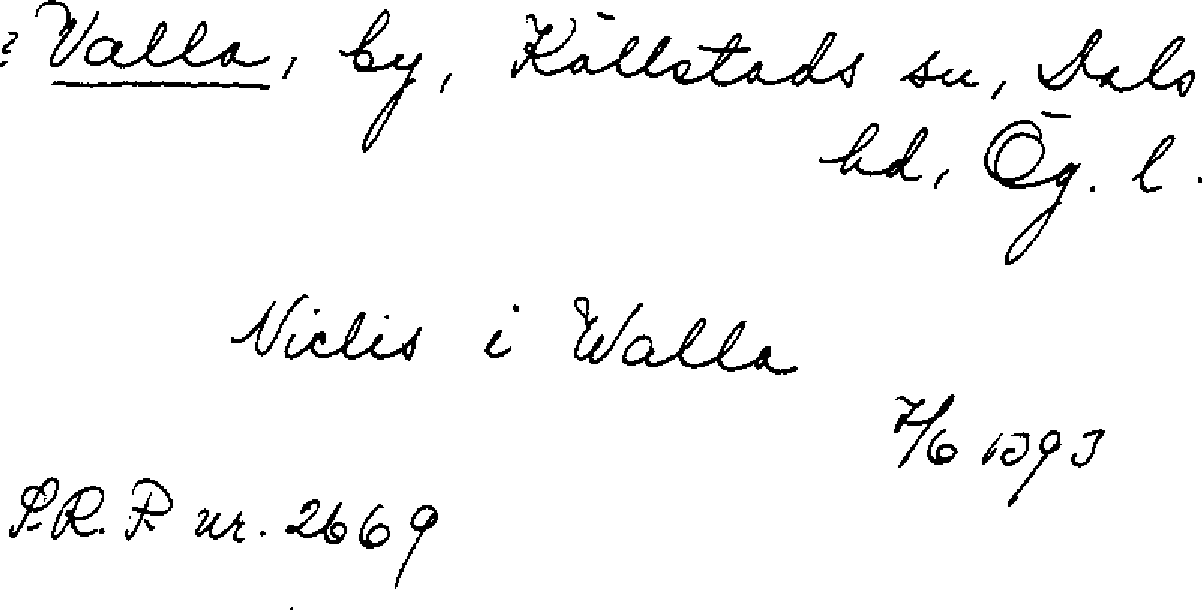 ? Valla, by, Källstads sn, Dals
hd, Ög. l.
Niclis i Walla
7/6 1393
S.R.P. nr. 2669